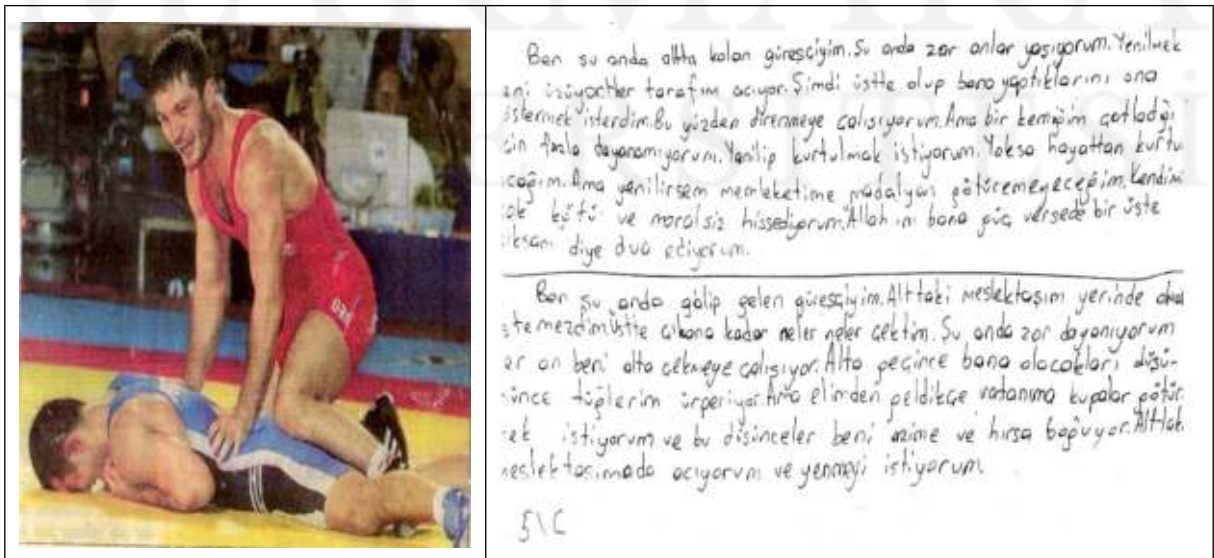 Ben şu anda altta kalan güreşciyim. Şu anda zor anlar yaşıyorum. Yenilmek
eni üzüyor her tarafım acıyor. Şimdi üstte olup bana yaptıklarını ona
östermek isterdim. Bu yüzden direnmeye çalışıyorum. Ama bir kemiğim çatladığı
çin fazla dayanamıyorum. Yenilip kurtulmak istiyorum. Yoksa hayattan kurtu
cağım. Ama yenilirsem memleketime madalyan götüremeyeceğim. Kendimi
ok kötü ve moralsiz hissediyorum. Allah ım bana güç versede bir üste
ıksam diye dua ediyorum.
Ben şu anda galip gelen güreşciyim. Alttaki meslektaşım yerinde olmak
stemezdim. Üstte çıkana kadar neler neler çektim. Şu anda zor dayanıyorum
er an beni alta çekmeye çalışıyor. Alta geçince bana olacakları düşü-
ünce tüylerim ürperiyor. Ama elimden geldikçe vatanıma kupalar götür
ek istiyorum ve bu düşünceler beni azime ve hırsa boğuyor. Alttaki
meslektaşımada acıyorum ve yenmeyi istiyorum.
5\C
GEO